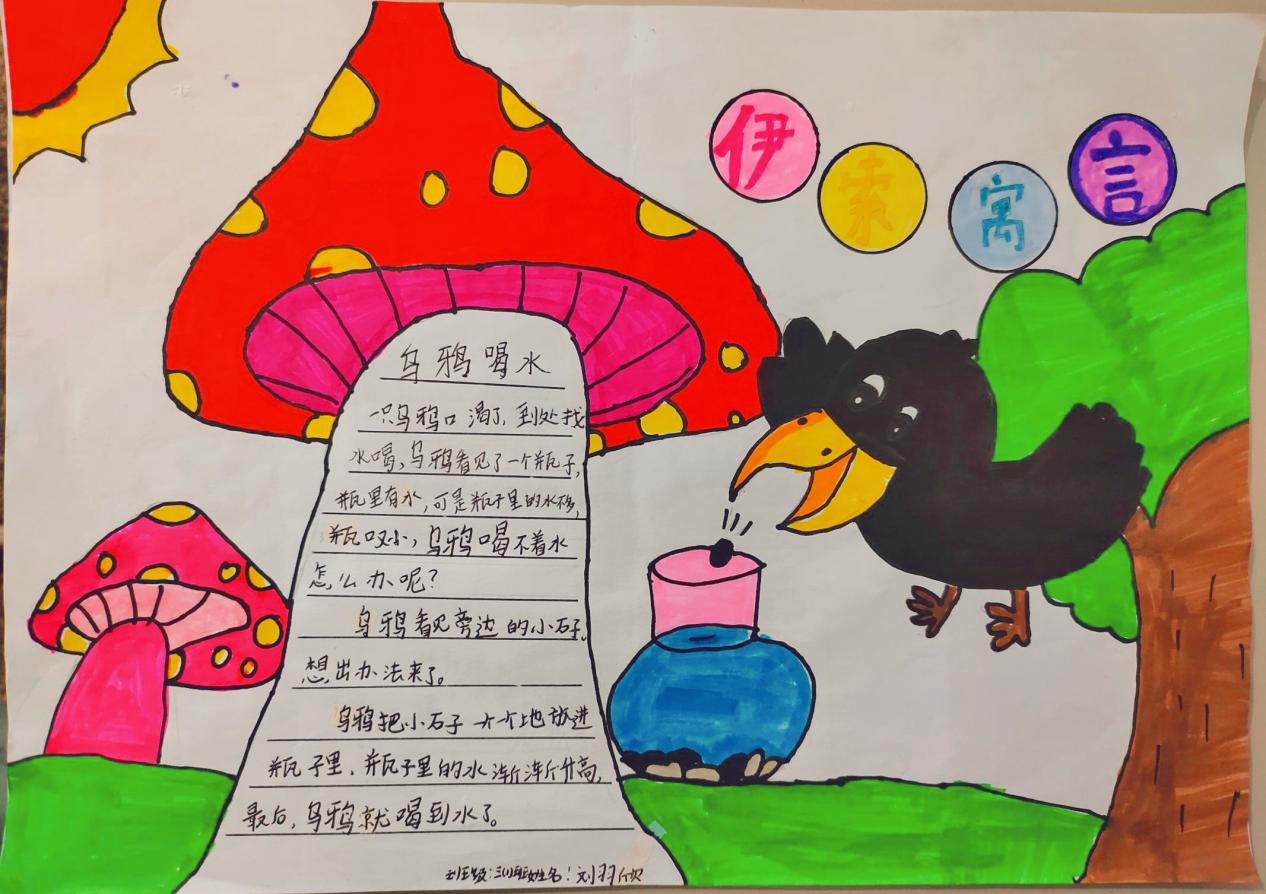 伊索寓言
乌鸦喝水
一只乌鸦口渴了,到处找
水喝,乌鸦看见了一个瓶子,
瓶里有水,可是瓶子里的水
瓶口又小,乌鸦喝不着水
怎么办呢?
乌鸦看见旁边的小石子,
想出办法来了。
乌鸦把小石子一个个地放进
瓶子里,瓶子里的水渐渐升高,
最后,乌鸦就喝到水了。
班级:三 班姓名:刘羽欣